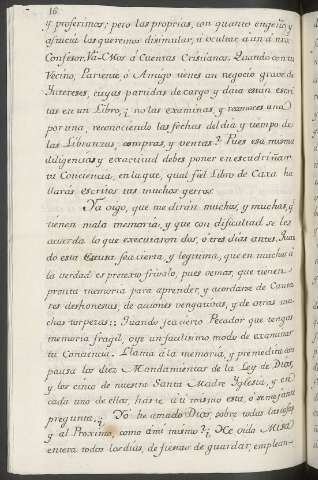 16.
y proferimos; pero las proprias, con quanto engeño, y
astucia las queremos disimular, u ocultar a un
Confesor. Va-
Vecino, Pariente, ó Amigo tienes un negocio grave de
Intereses, cuyas partidas de cargo y data estan escri
tas en un Libro, ¿no las examinas, y reconoces una
por una, reconociendo las fechas del dia y tiempo de
las Libranzas, compras, y ventas? Pues esa misma
diligencia y exactitud debes poner en escudriñar
tu Conciencia, en la que, qual fiel Libro de Caxa ha
llarás escritos tus muchos yerros.
Ya oigo, que me dirán muchos, y muchas, q.
tienen mala memoria, y que con dificultad se les
acuerda lo que executaron dos, ó tres dias antes.
do esta Causa sea cierta y legitima, que en muchos á
la verdad es pretexto frivolo, pues vemos, que tienen
pronta memoria para aprender, y acordarse de Canta
res deshonestos, de acciones vengativas, y de otras mu
chas torpezas; Quando sea cierto Pecador que tengas
memoria fragil, oye un facilisimo modo de examinar
tu Conciencia. Llama á la memoria, y premedita con
pausa los diez Mandamientos de la Ley de Dios,
y los cinco de nuestra Santa Madre Iglesia, y en
cada uno de ellos, hazte á ti mismo esta, ó semejante
pregunta. ¿Yo he amado á Dios, sobre todas las cosas
y al Proximo, como á mi mismo? ¿He oido Misa
entera todos los dias, de fiestas de guardar, emplean-